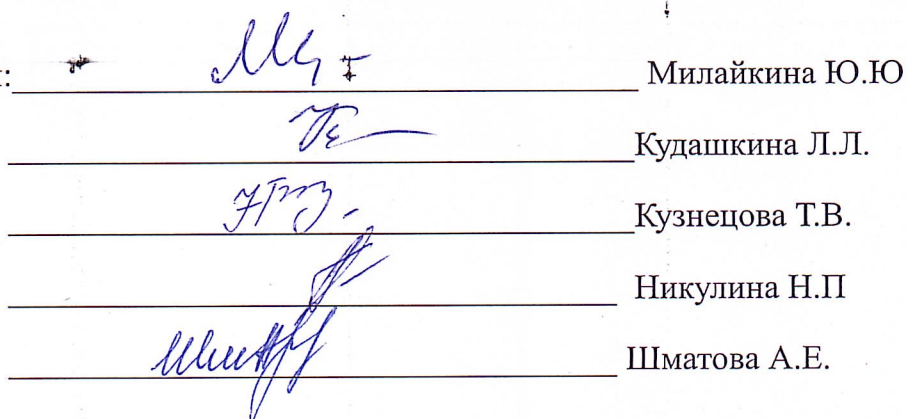 Милайкина Ю.Ю
Кудашкина Л.Л.
Кузнецова Т.В.
Никулина Н.П
Шматова А.Е.